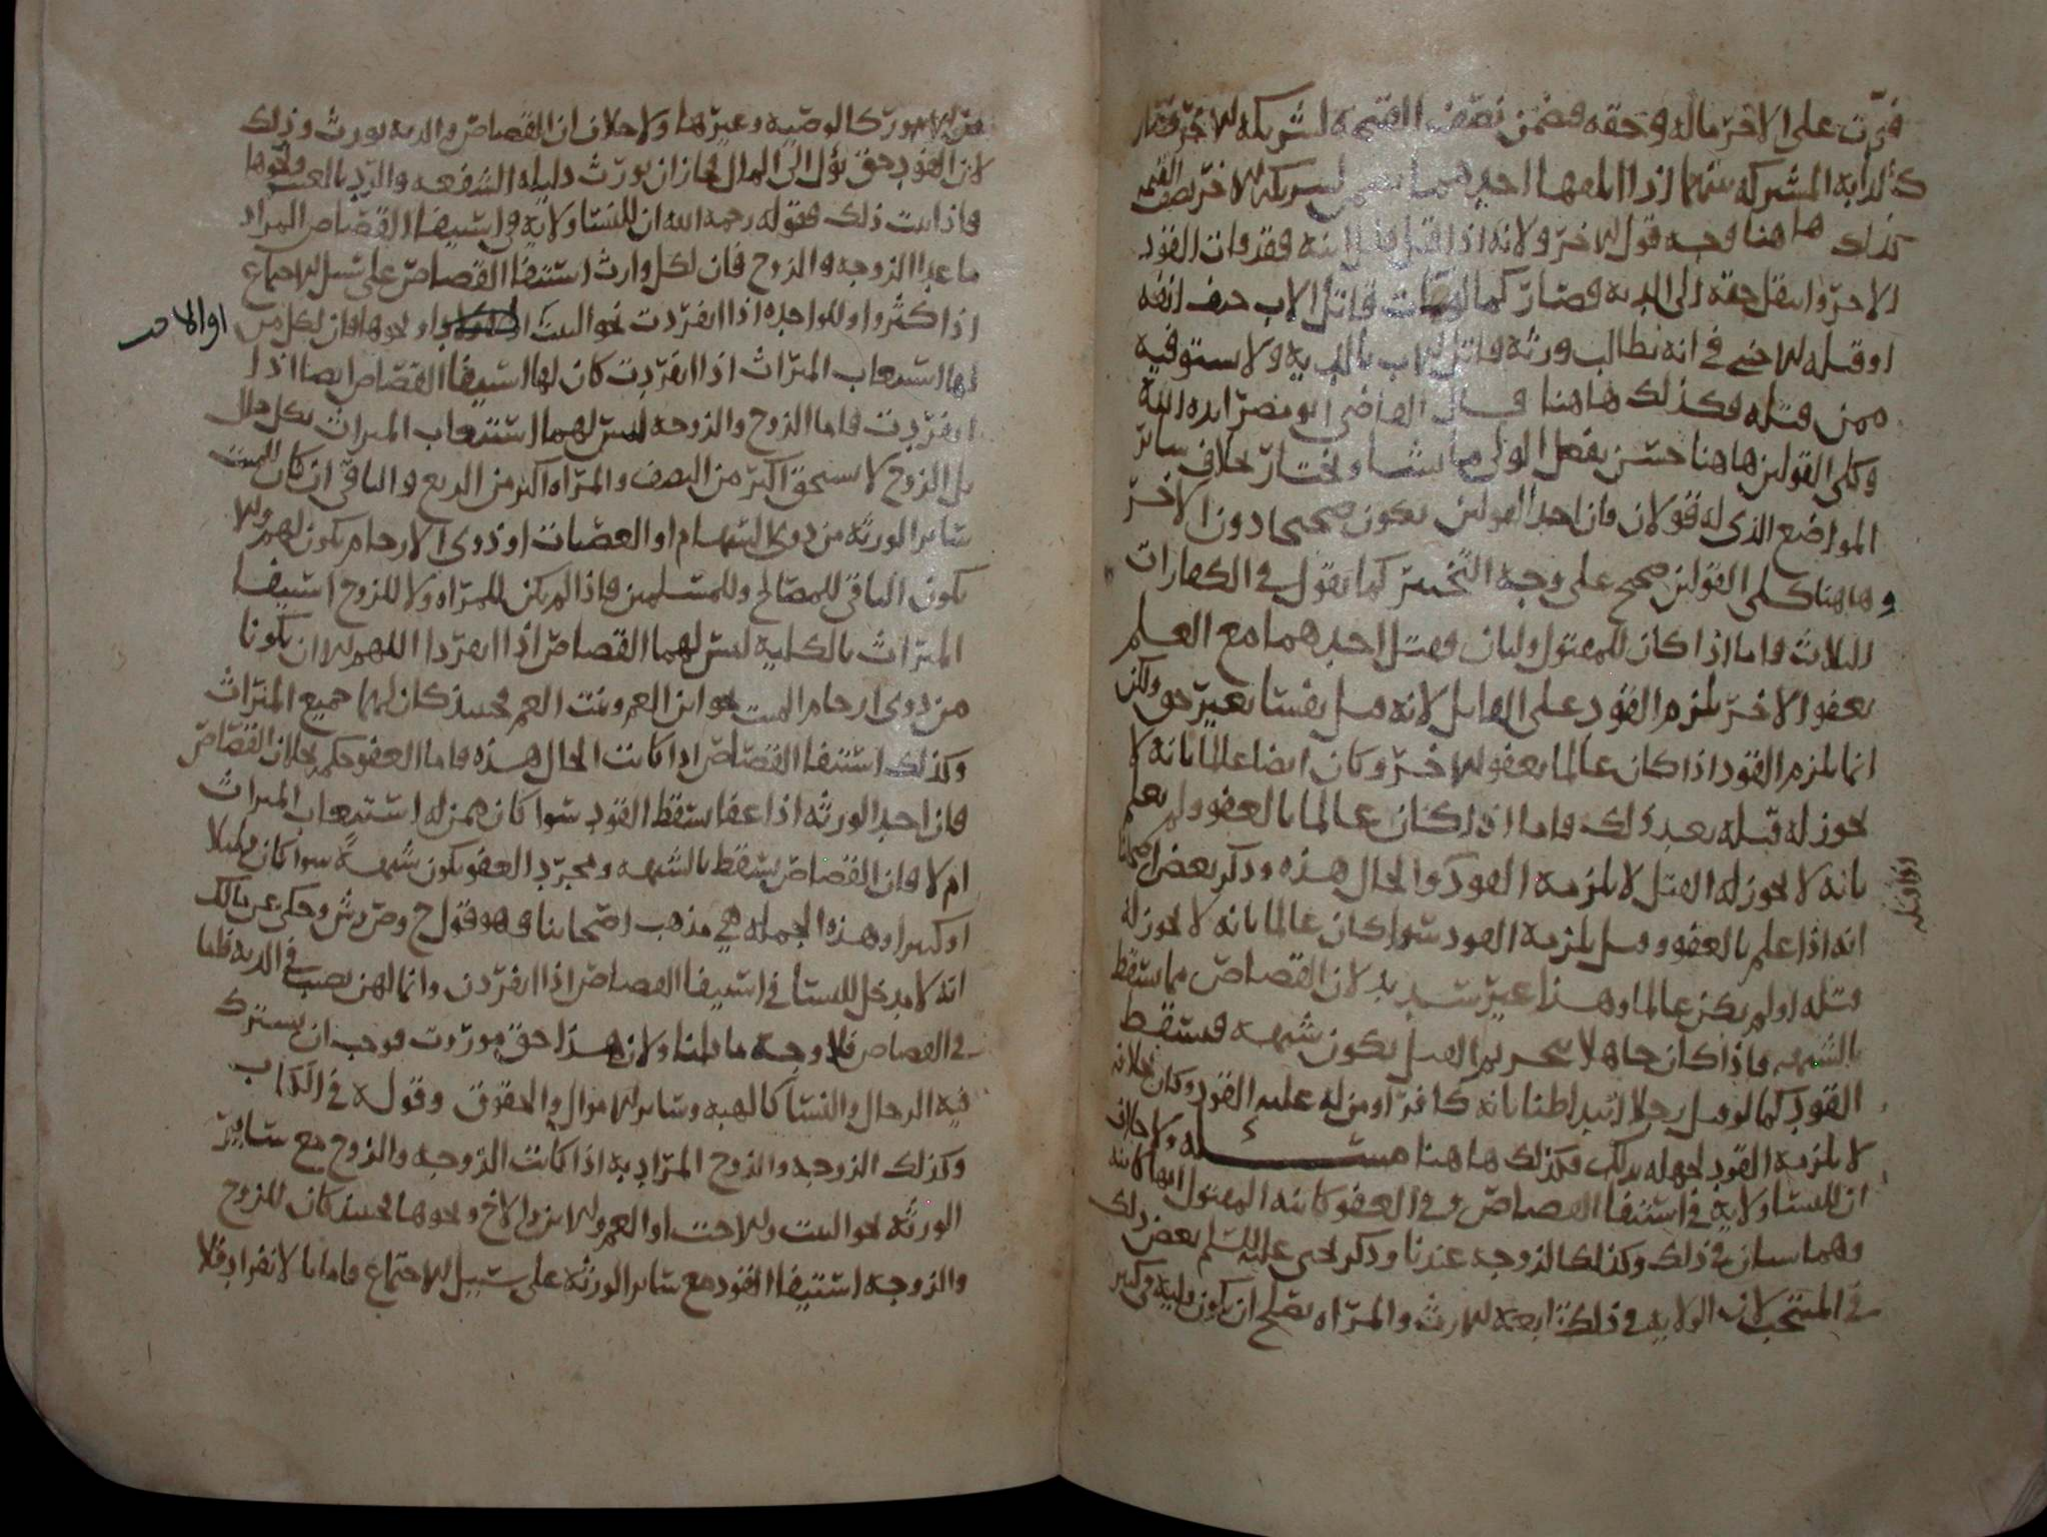 فوّت على الاخر ماله وحقه فضمن نصف القيمة لشريكه الاخر فصار
كالدابه المشتركه بينهما اذا اتلفها احدهما لشريكه الاخر نصف القيمه
كذلك هاهنا وجه قول الاخر ولانه اذا قتل فقد فات القود
الاخر وانتقل حقه الى الديه فصار كما لو مات قاتل الاب حتف انفه
او قتله الاجنبي في انه يطالب ورثة قاتل الاب بالديه ولا يستوفيه
ممن قتله فكذلك هاهنا قال القاضي ابو مضر ايده الله
وكلى القولين هاهنا حسن يفعل الولي ما يشا ويختار بخلاف سائر
المواضع الذي له قولان فان احد القولين يكون صحيحا دون الاخر
وهاهنا كلى القولين صحيح على وجه التخيير كما يقول في الكفارات
الثلاث واما اذا كان للمقتول وليان فقتل احدهما مع العلم
بعفو الاخر يلزم القود على القاتل لانه قتل نفسا بغير حق ولكن
انما يلزم القود اذا كان عالما بعفو الاخر وكان ايضا عالما بانه لا
يجوز له قتله بعد ذلك فاما اذا كان عالما بالعفو ولم يعلم
بانه لا يجوز له القتل لا يلزمه القود والحال هذه وذكر بعض اصحابنا
انه اذا علم بالعفو وقتل يلزمه القود سوا كان عالما بانه لا يجوز له
قتله او لم يكن عالما وهذا غير سديد لان القصاص مما يسقط
بالشبهه فاذا كان جاهلا بتحريم القتل يكون شبهه فيسقط
القود كما لو قتل رجلا ظنا بانه كافر او من له عليه القود وكان بخلافه
لا يلزمه القود لجهله بذلك فكذلك هاهنا مسئله ولا خلاف
ان للنسا ولاية في استيفا القصاص وفي العفو كابنه المقتول
وهما سيان في ذلك وكذلك الزوجه عندنا وذكر يحيى عليه السلم بعض ذلك
في المنتخب لان الولايه في ذلك تابعة للارث والمراه تصلح ان تكون وليه في كثير
من الامور كالوصيه وغيرها ولا خلاف ان القصاص والديه يورث وذلك
لان القود حق يؤل الى المال فجاز ان يورث دليله الشفعه والرد بالعيب ونحوها
فاذا ثبت ذلك فقوله رحمه الله ان للنسا ولاية في استيفا القصاص المراد
ما عدا الزوجه والزوج فان لكل وارث استيفا القصاص على سبيل الاجتماع
اذا كثروا وللواحده اذا انفردت نحو البنت او نحوها فان لكل من
لها استيعاب الميراث اذا انفردت كان لها استيفا القصاص ايضا اذا
انفردت فاما الزوج والزوجه ليس لهما استيعاب الميراث بكل حال
بل الزوج لا يستحق اكثر من النصف والمراه اكثر من الربع والباقي ان كان للميت
سائر الورثه من ذوي السهام او العصبات او ذوي الارحام يكون لهم والا
يكون الباقي للمصالح وللمسلمين فاذا لم يكن للمراه ولا للزوج استيفا
الميراث بالكلية ليس لهما القصاص اذا انفردا اللهم الا ان يكونا
من ذوي ارحام الميت نحو ابن العم وبنت العم فحينئذ كان لهما جميع الميراث
وكذلك استيفا القصاص اذا كانت الحال هذه فاما العفو حكمه بخلاف القصاص
فان احد الورثه اذا عفا سقط القود سوا كان ممن له استيعاب الميراث
ام لا فان القصاص يسقط بالشبهه وبمجرد العفو يكون شبهة سوا كان قليلا
او كثيرا وهذه الجمله هي مذهب اصحابنا وهو قول ح وص وش وحكي عن مالك
انه لا مدخل للنسا في استيفا القصاص اذا انفردن وانما لهن نصيب في الديه فاما
في القصاص فلا وجه ما قلنا ولان هذا حق موروث فوجب ان يشترك
فيه الرجال والنسا كالهبه وسائر الاموال والحقوق وقوله في الكتاب
وكذلك الزوجه والزوج المراد به اذا كانت الزوجه والزوج مع سائر
الورثه نحو البنت والاخت او العم والابن والاخ ونحوها فحينئذ كان للزوج
والزوجه استيفا القود مع سائر الورثه على سبيل الاجتماع فاما بالانفراد فلا